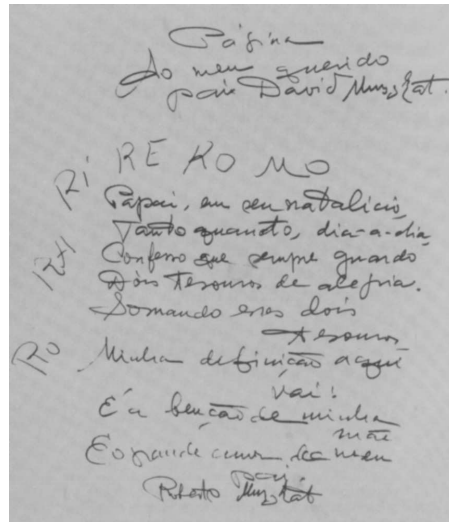 Página
Ao meu querido
pai David Muszkat.
RI RE RO MO
Papai, em seu natalício,
Tanto quanto, dia-a-dia,
Confesso que sempre guardo
Dois Tesouros de alegria.
Somando esses dois
Tesouros
Minha definição aqui
vai:
É a benção de minha
mãe
E o grande amor de meu
pai
Roberto Muszkat
RO